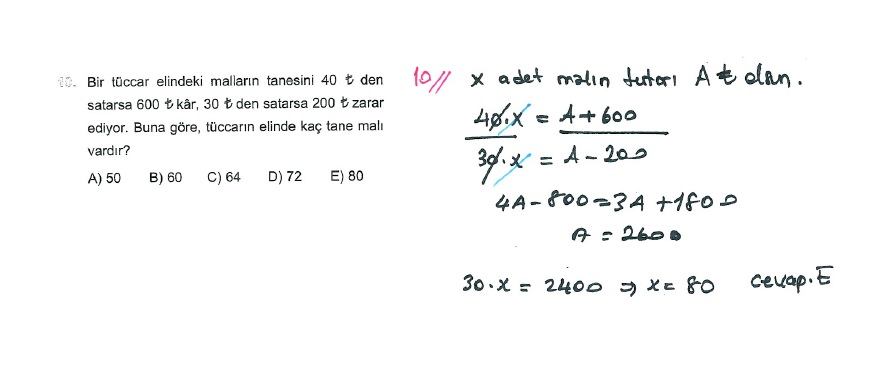 10. Bir tüccar elindeki malların tanesini 40 ₺ den
satarsa 600 ₺ kâr, 30 ₺ den satarsa 200 ₺ zarar
ediyor. Buna göre, tüccarın elinde kaç tane malı
vardır?
A) 50 B) 60 C) 64 D) 72 E) 80
10// x adet malın tutarı A ₺ olsun.
40.x = A + 600
30.x = A - 200
4A - 800 = 3A + 1800
A = 2600
30.x = 2400 ⇒ x = 80 cevap.E